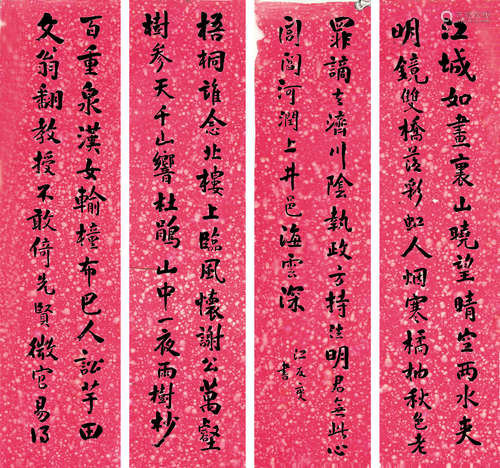 江城如畫裏山曉望晴空兩水夾
明鏡雙橋落彩虹人烟寒橘柚秋色老
罪謫去濟川陰執政方持法明君無此心
閭閻河潤上井邑海雲深
江友燮
書
梧桐誰念北樓上臨風懷謝公萬壑
樹參天千山響杜鵑山中一夜雨樹杪
百重泉漢女輸橦布巴人訟芋田
文翁翻教授不敢倚先賢微官易得